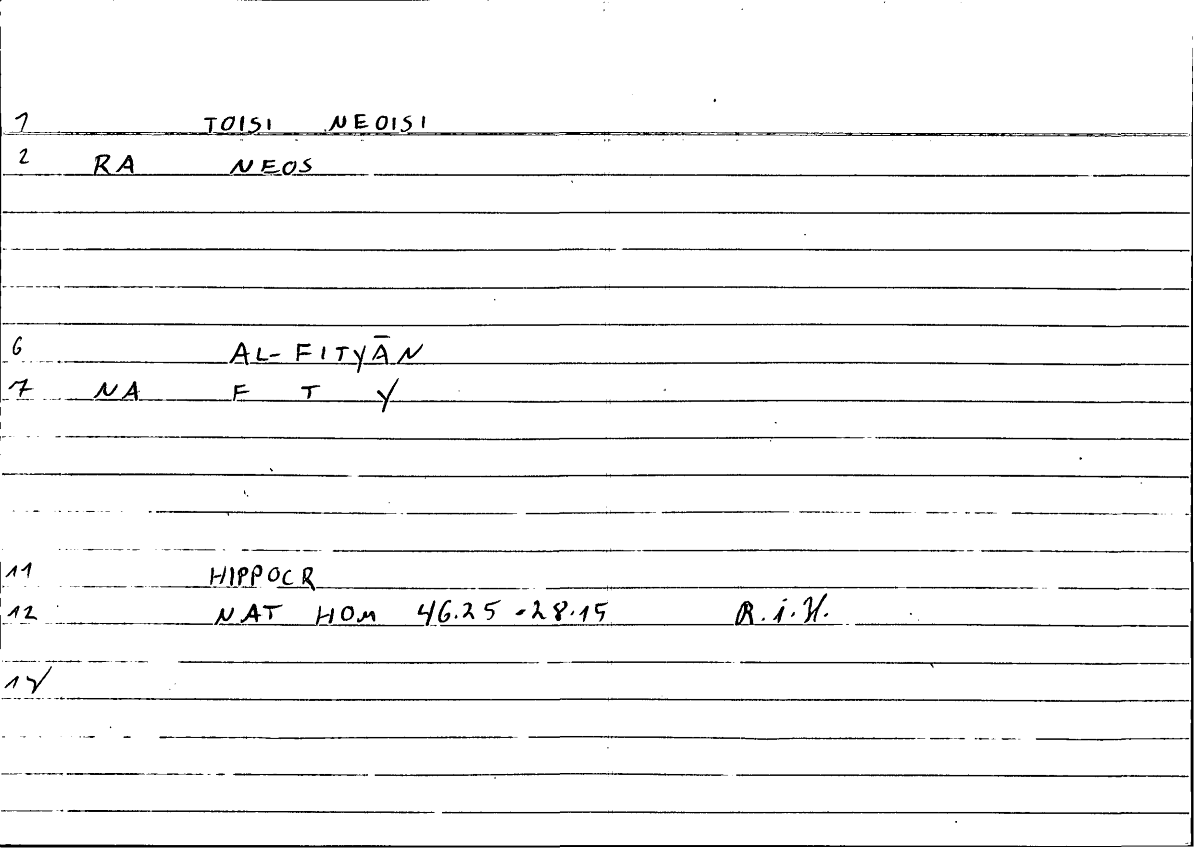 1 TOISI NEOISI
2 RA NEOS
6 AL-FITYĀN
7 NA F T Y
11 HIPPOCR
12 NAT HOM 46.25 -28.15 R.i.H.